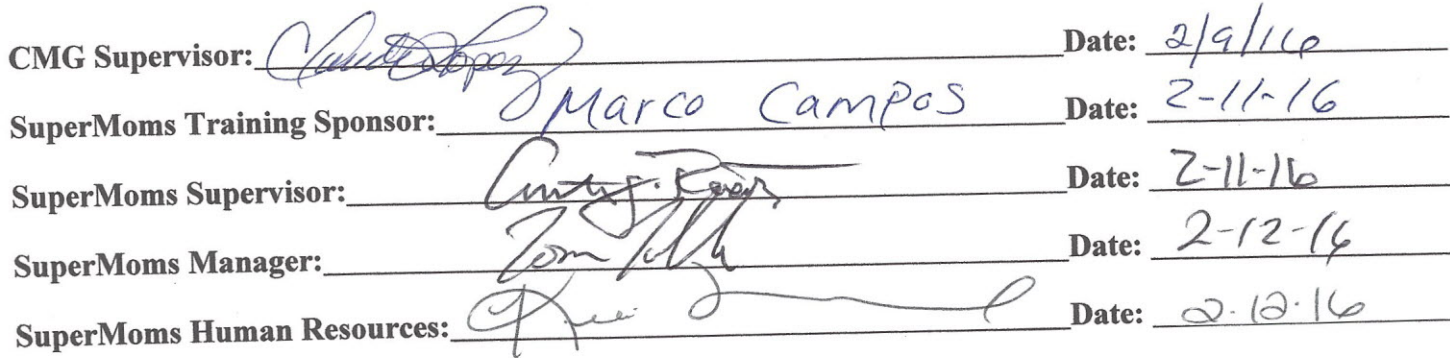 CMG Supervisor: Lopez Date: 2/9/16
SuperMoms Training Sponsor: Marco Campos Date: 2-11-16
SuperMoms Supervisor: Date: 2-11-16
SuperMoms Manager: Tom Date: 2-12-16
SuperMoms Human Resources: Date: 2.12.16